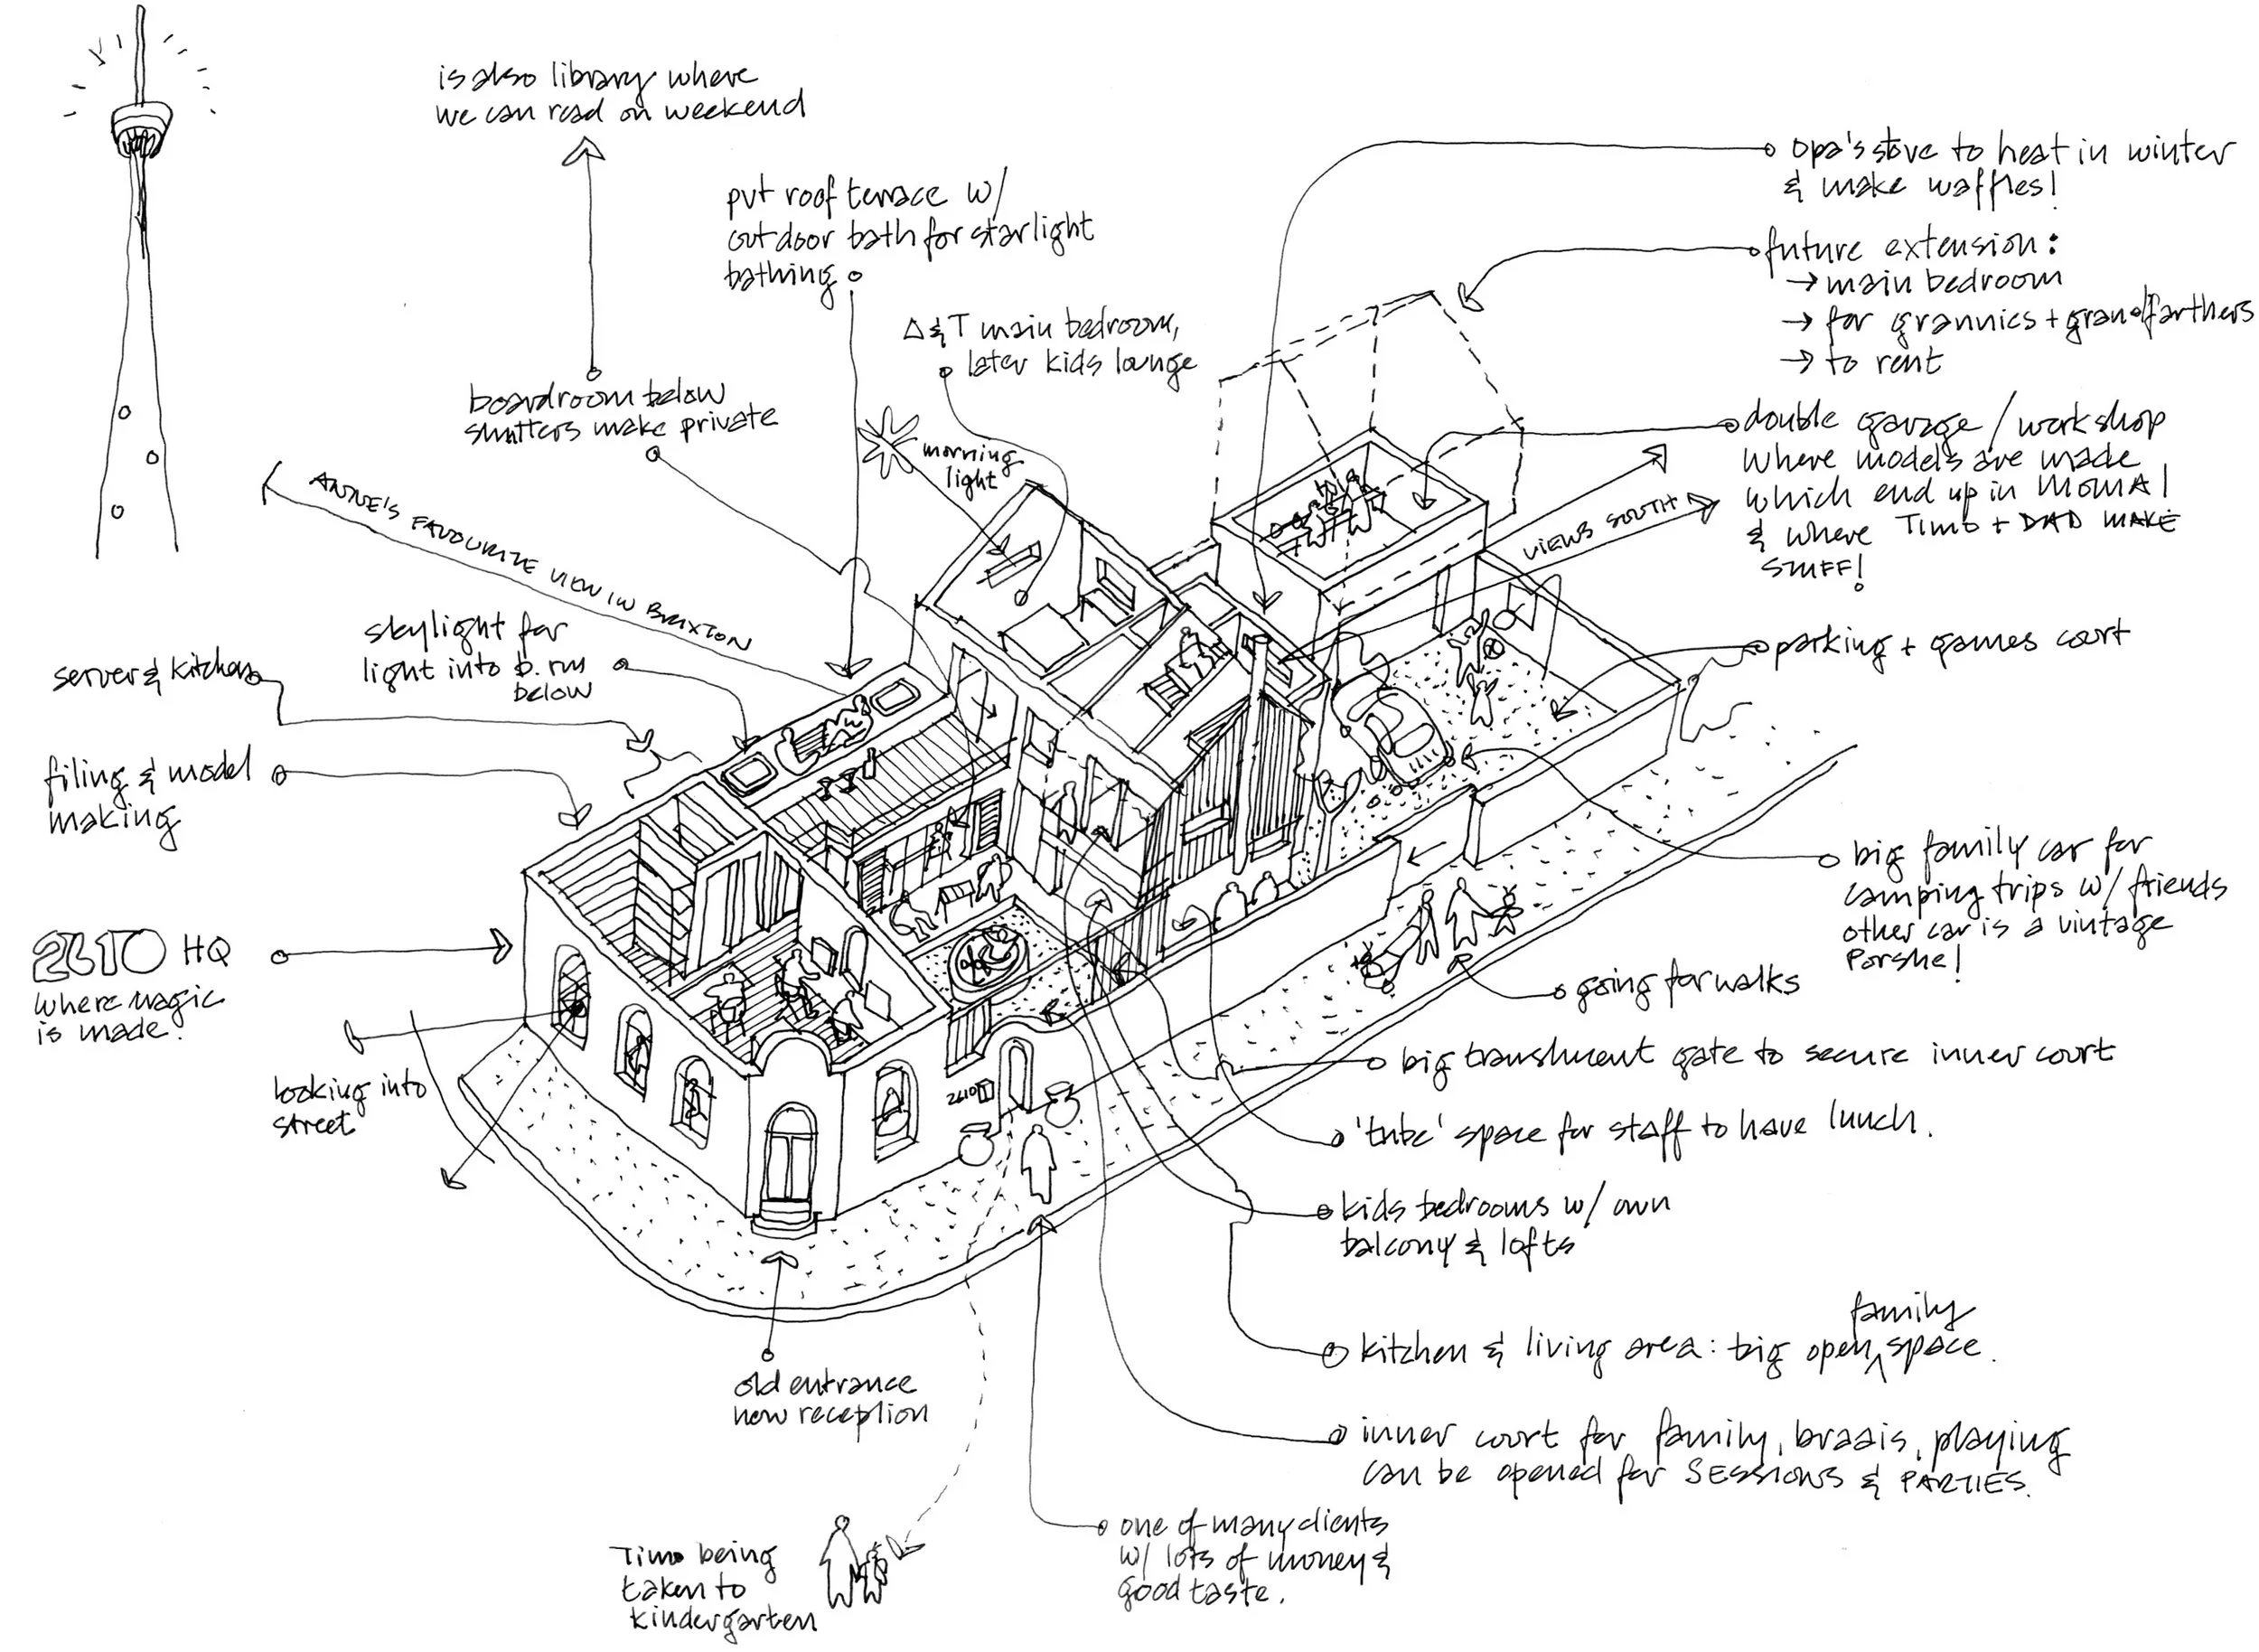 is also library where
we can read on weekend
put roof terrace w/
outdoor bath for starlight
bathing
A & T main bedroom,
later kids lounge
morning
light
boardroom below
shutters make private
ANNE'S FAVOURITE VIEW IN BRIXTON
skylight for
light into b.rm
below
server & kitchen
filing & model
making
2610 HQ
where magic
is made.
looking into
street
2610
old entrance
new reception
Timo being
taken to
kindergarten
opa's stove to heat in winter
& make waffles!
future extension:
→ main bedroom
→ for grannies + grandfarthers
→ to rent
double garage / workshop
where models are made
which end up in MOMA!
& where TIMO + DAD MAKE
STUFF!
VIEWS SOUTH
parking + games court
big family car for
camping trips w/ friends
other car is a vintage
Porshe!
going for walks
big translucent gate to secure inner court
'tube' space for staff to have lunch.
kids bedrooms w/ own
balcony & lofts
family
kitchen & living area: big open space.
inner court for family, braais, playing
can be opened for SESSIONS & PARTIES.
one of many clients
w/ lots of money &
good taste.